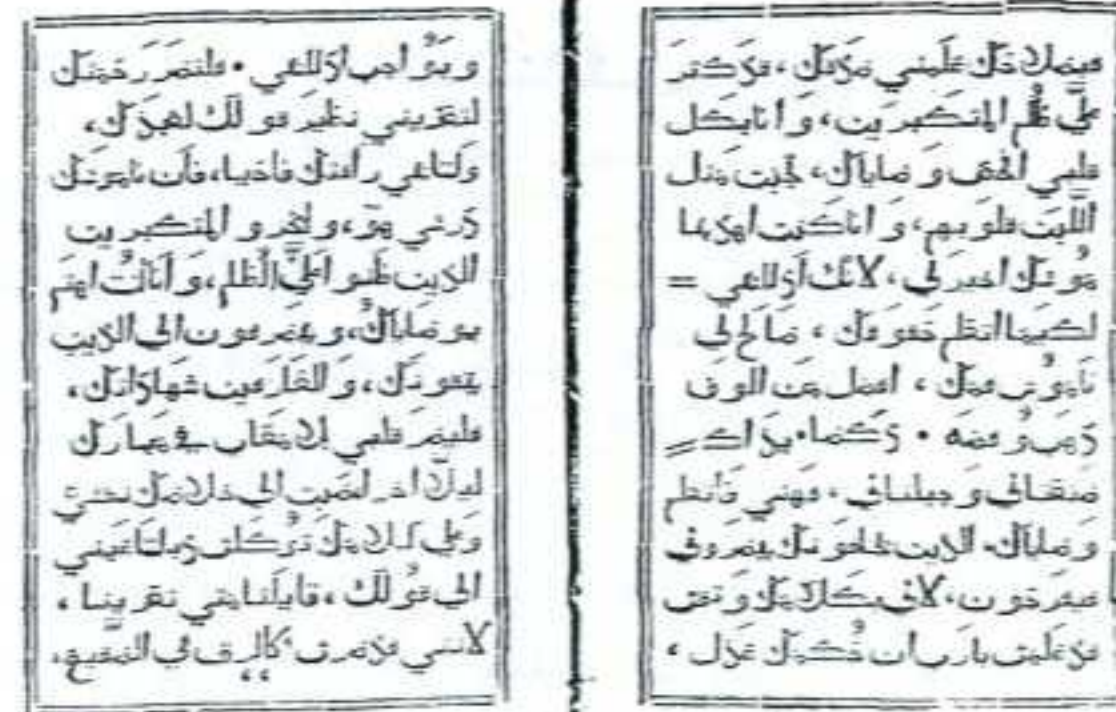 علمني عدلك، قد كثر
عليَّ ظُلم المتكبرين، وأنا بكل
قلبي افحص وصاياك، تجبنت مثل
اللبن قلوبهم، وأنا كنت اهذ بنا
موسك اخير لي، لانك أذللتني =
لكيما اتعلم حقوقك، صالح لي
ناموس فمك، افضل من الوف
ذهب وفضه. يداك
صنعتاني وجبلتاني، فهمني فاتعلم
وصاياك، الذين يخافونك يبصروني
فيفرحون، لاني بكلامك وثقت
قد علمت يارب ان حُكمك عدل،
اذللتني. فلتصر رحمتك
لتعزيني نظير قولك لعبدك،
ولتاتي رافتك فاحيا، فان ناموسك
درسي هو، المتكبرين
الذين الظلم، وأنا كنت اهتم
بوصاياك، الي الذين
يتقونك، والعارفين شهاداتك،
فليصر قلبي بلا في
وعلى كلامك توكلت عيني
الى قولك، متى تعزينا،
لانني قد صرت كالزق في الصقيع،